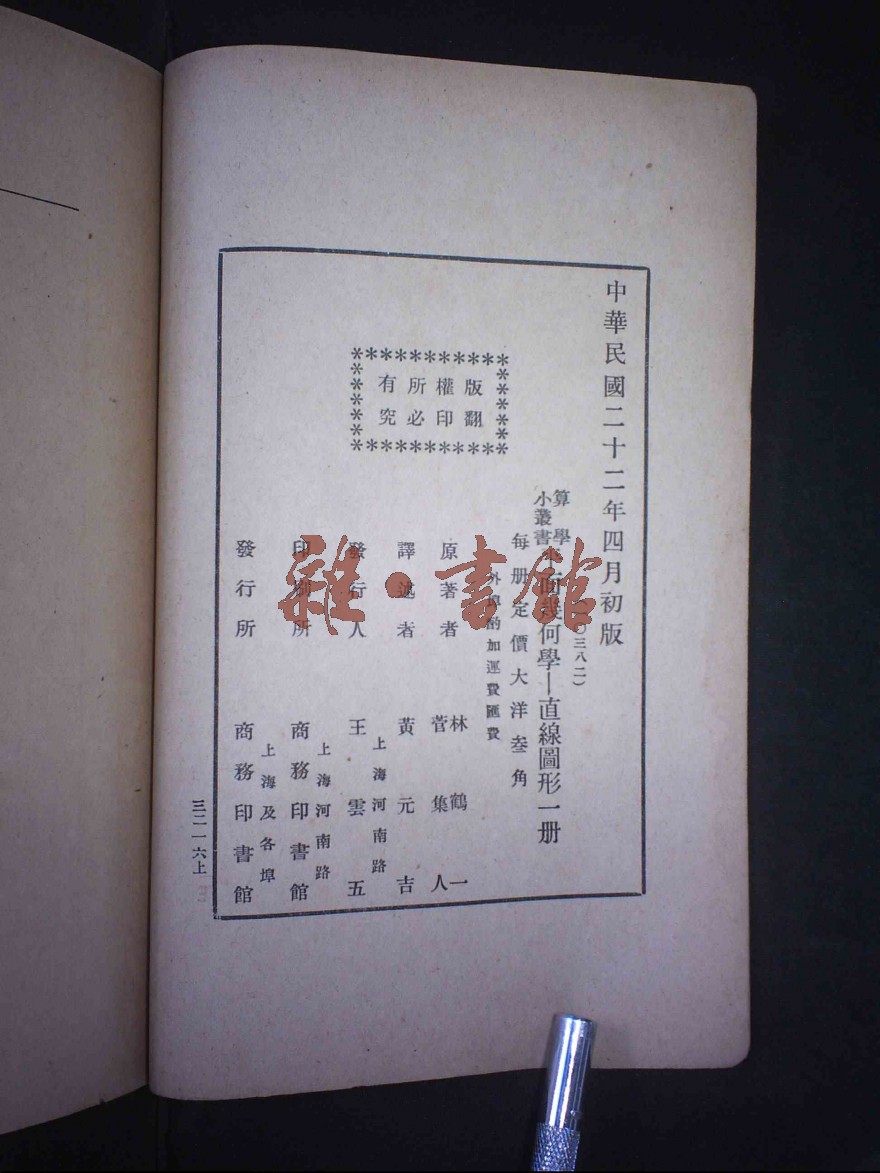 中華民國二十二年四月初版
(一〇三八二)
算學
小叢書
平面幾何學—直線圖形一册
每册定價大洋叁角
外埠酌加運費匯費
版權所有
翻印必究
原著者
林鶴一
菅集人
譯述者 黃元吉
上海河南路
發行人 王雲五
上海河南路
印刷所 商務印書館
上海及各埠
發行所 商務印書館
三二一六上
雜·書館